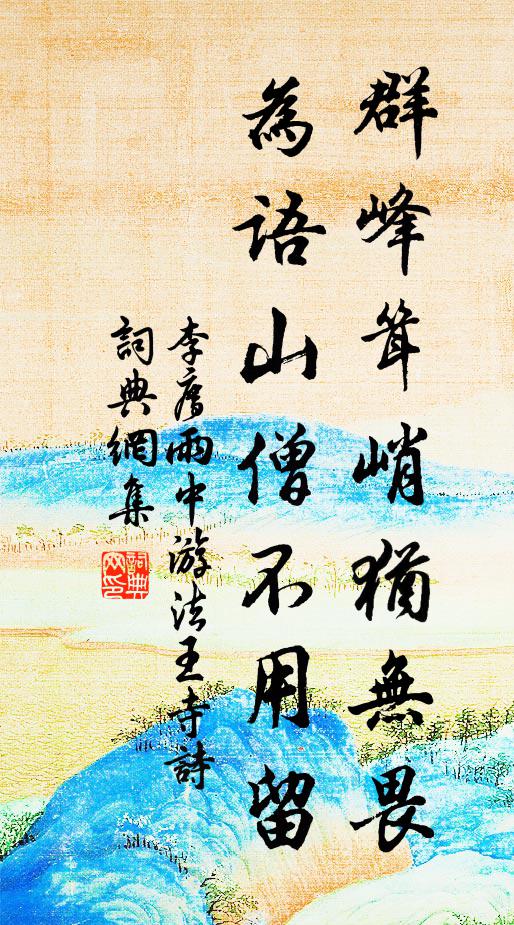 群峰耸峭猶無畏
為語山僧不用留
李廌雨中游法王寺詩
詞典網集
詞典網印